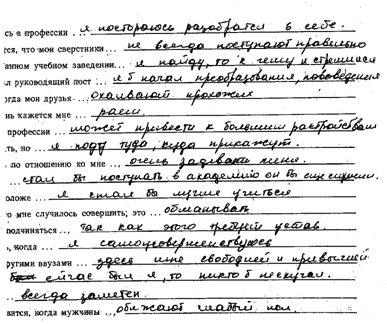 сь в профессии ... я постораюсь разобратся в себе.
тся, что мои сверстники ... не всегда поступают правильно
атном учебном заведении... я пойду, то к чему и стремился
ал руководящий пост ... я б начал преобразования, нововведения
огда мои друзья... охаивают прохожих
нь кажется мне ... раем.
профессии ... может привести к большим растройствам
ть, но ... я пойду туда, куда прикажут.
по отношению ко мне ... очень задевают меня.
... стал бы поступать в академию он бы еще
оложе ... я стал бы лучше учиться
о мне случилось совершить; это ... обманывать
подчиняться ... так как этого требует устав.
, когда ... я самоусовершенствуюсь
ругими вузами ... здесь свободней и привычней
сейчас был я, то никто б не скучал.
... всегда заметен
вится, когда мужчины ... обижают слабый пол.